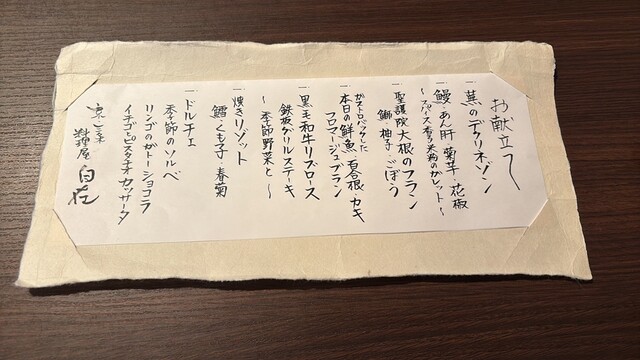 お献立て
一 蕪のデクリネゾン
一 鰻・あん肝・菊芋・花椒
～スパイス香る米粉のガレット～
一 聖護院大根のフラン
鰤・柚子・ごぼう
一 ガストロバックした
本日の鮮魚・百合根・カキ
フロマージュブラン
一 黒毛和牛リブロース
鉄板グリルステーキ
～季節野菜と～
一 焼きリゾット
鱈・くも子・春菊
一 ドルチェ
季節のソルベ
リンゴのガトーショコラ
イチゴとピスタチオカッサータ
料理屋 自在